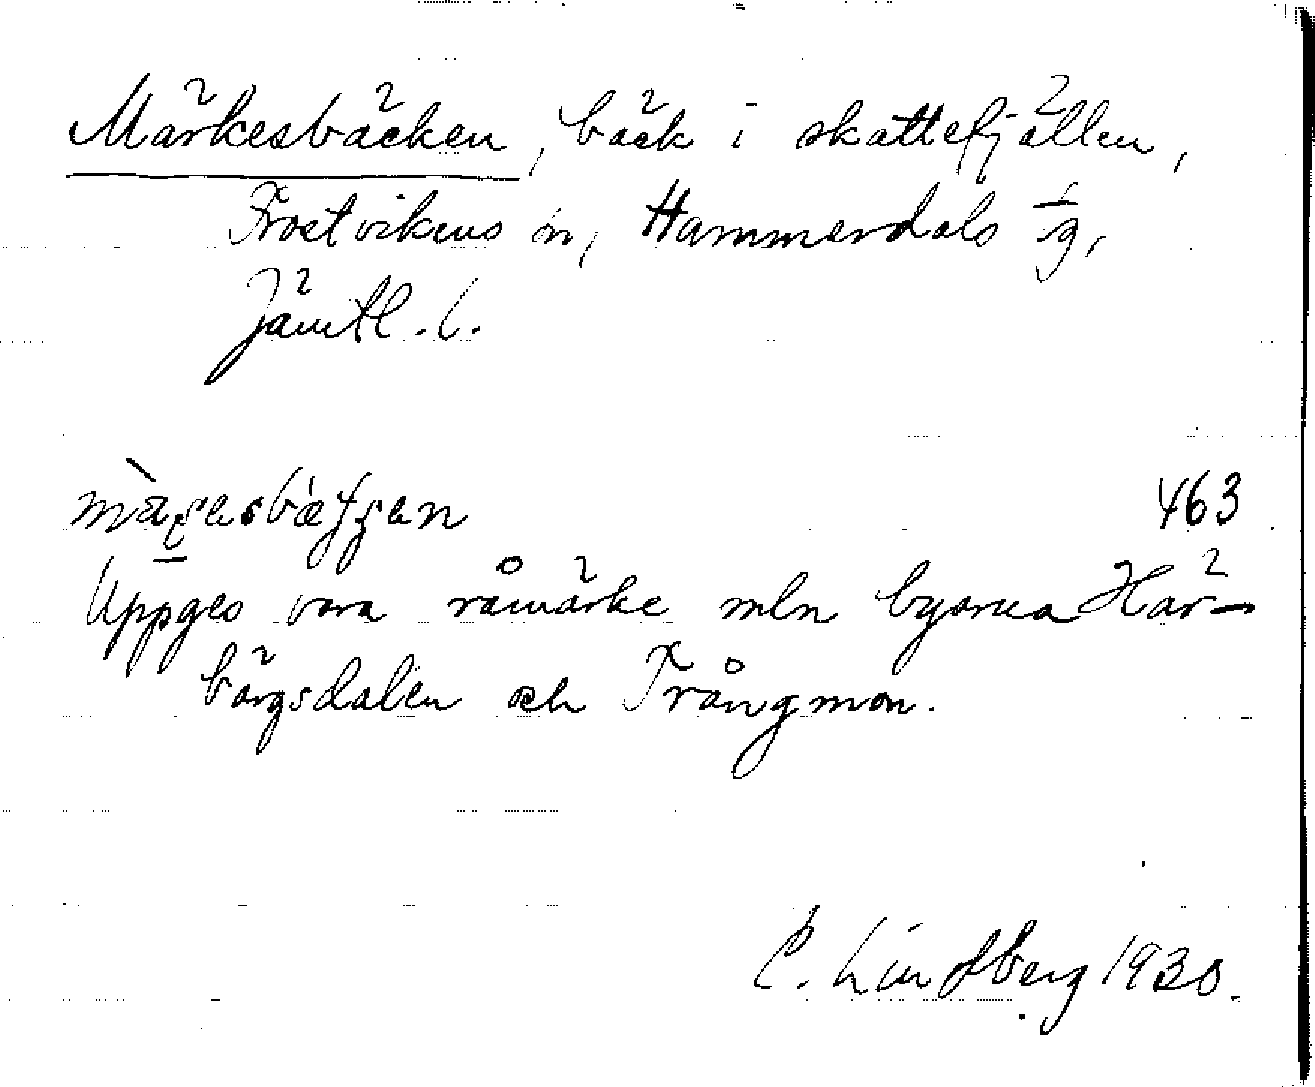 Märkesbäcken, bäck i skattefjällen,
Frostvikens sn, Hammerdals tg,
Jämtl. l.
463
Uppges vara råmärke mln byarna Här-
bärgsdalen och Trångmon.
C. Lindberg 1930.